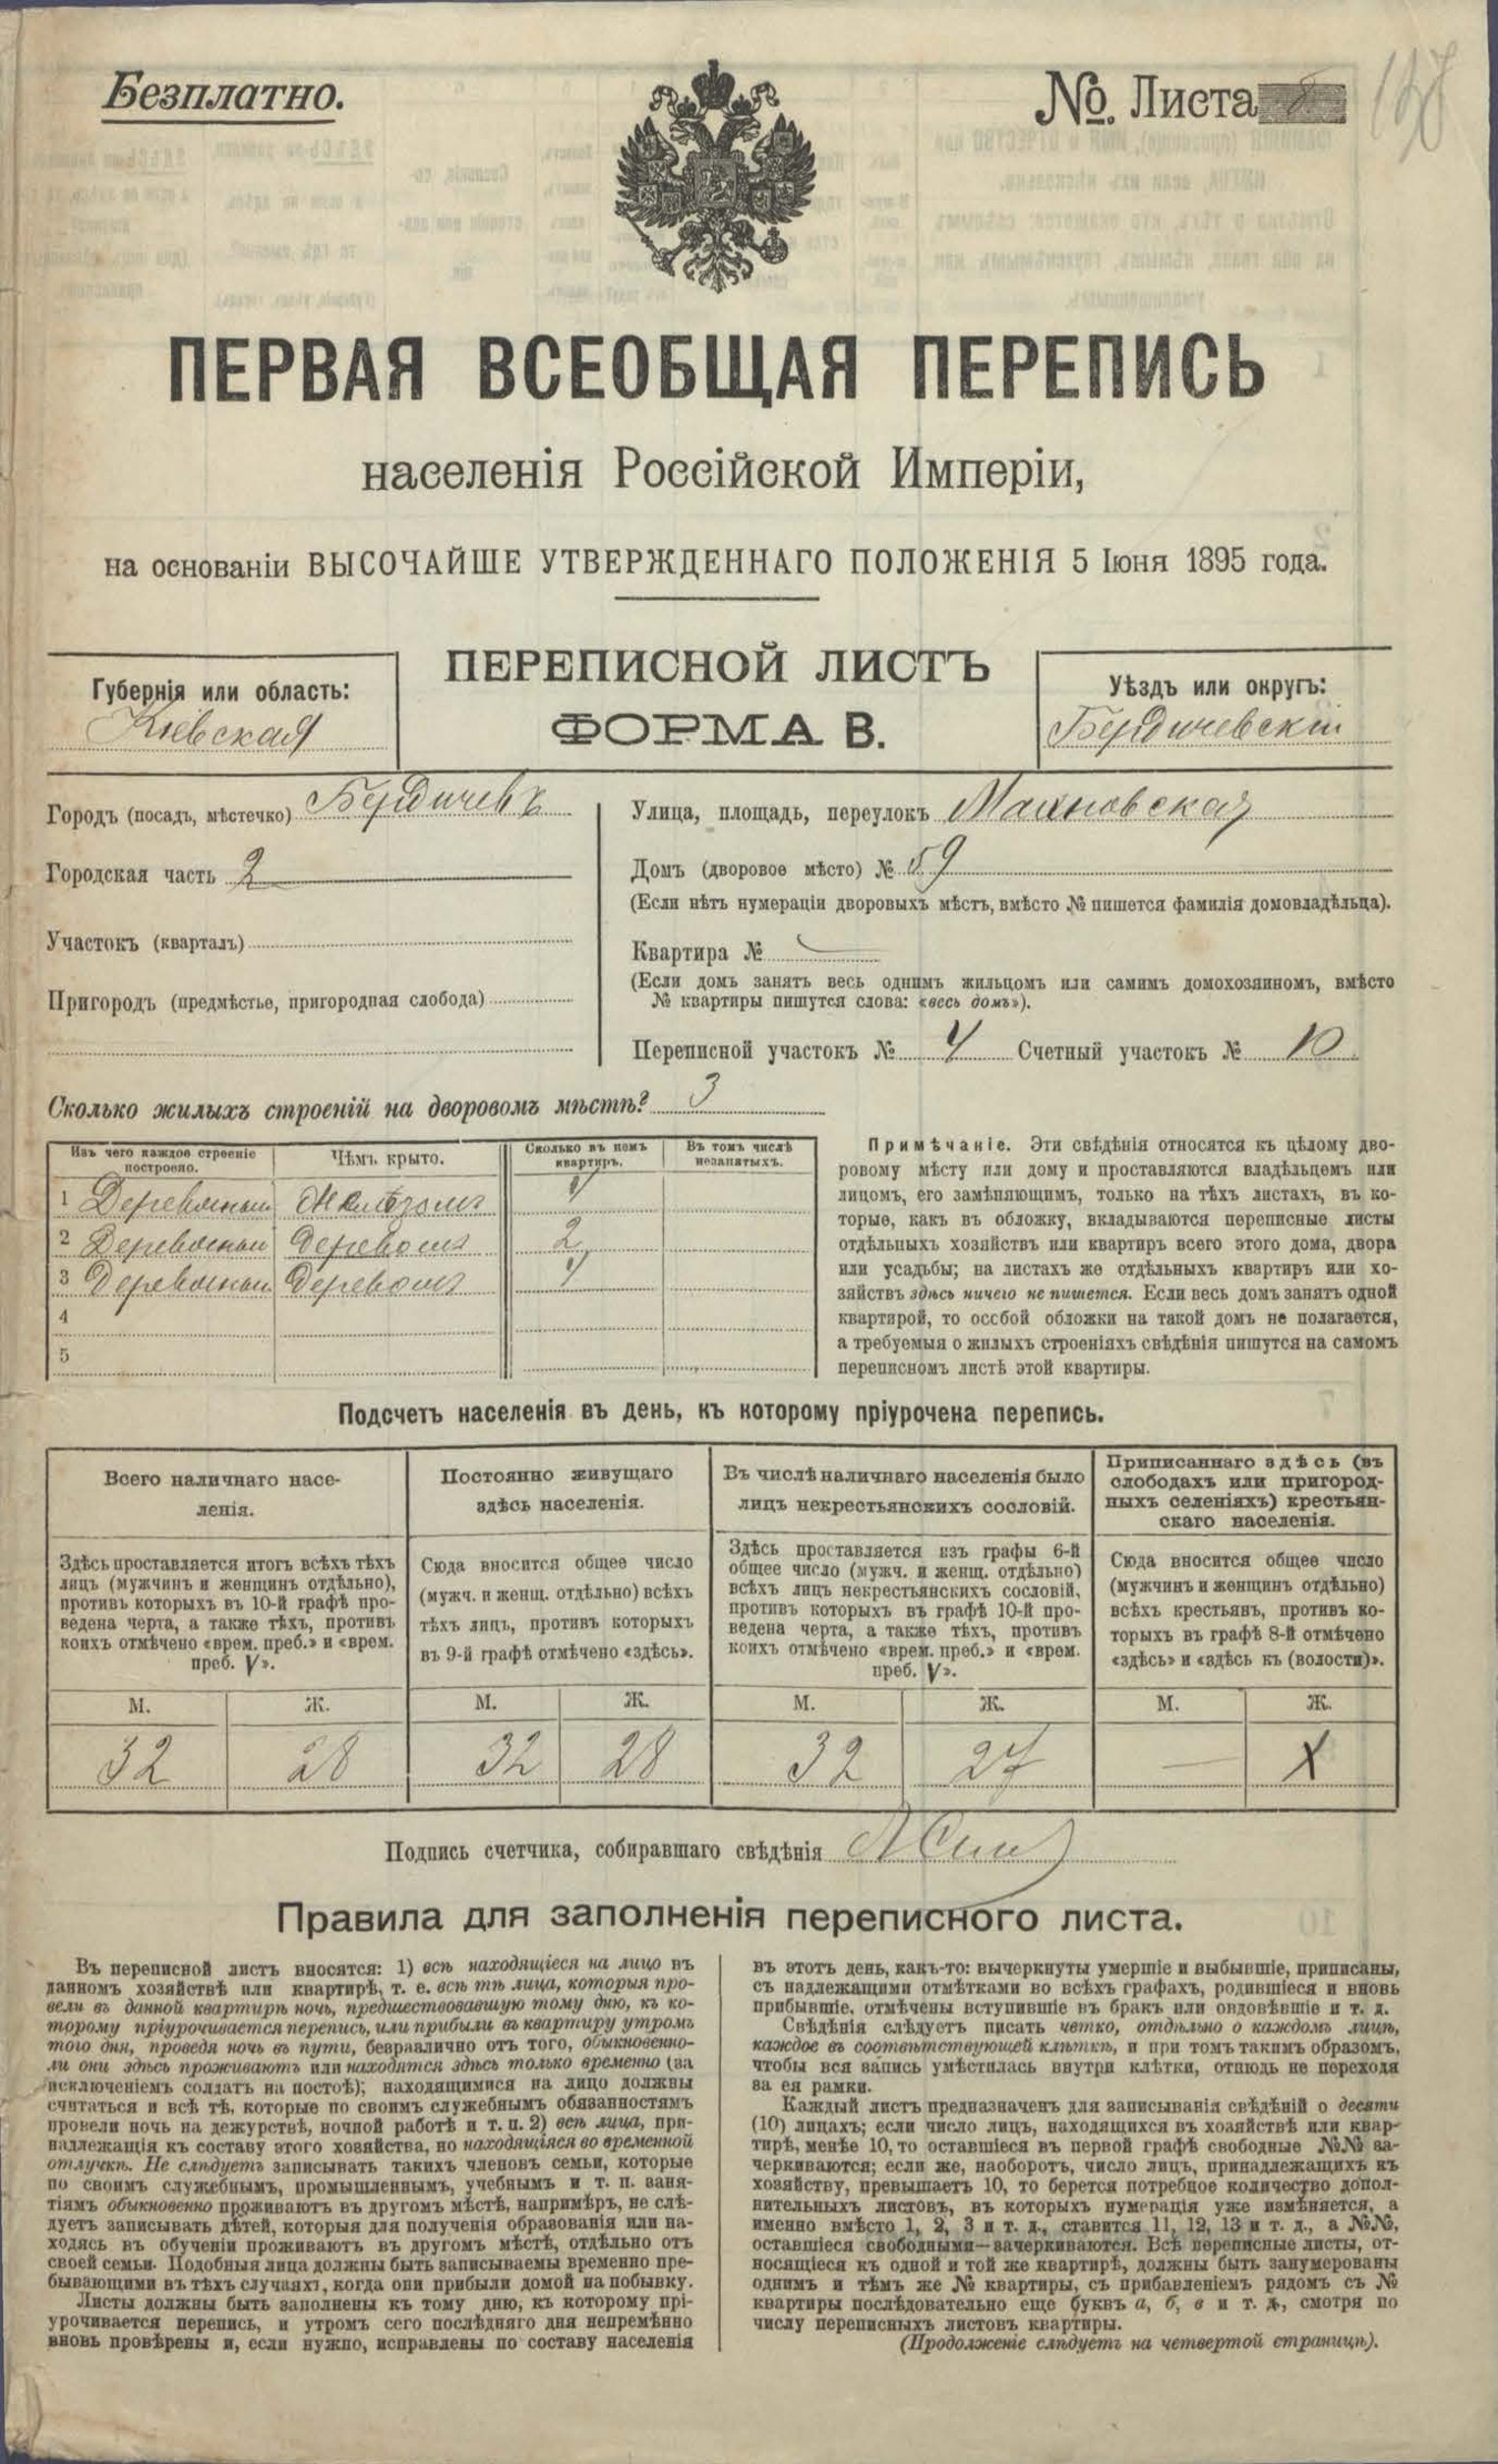 Безплатно.
№. Листа
ПЕРВАЯ ВСЕОБЩАЯ ПЕРЕПИСЬ
населенія Россійской Имперіи,
на основаніи ВЫСОЧАЙШЕ УТВЕРЖДЕННАГО ПОЛОЖЕНІЯ 5 Іюня 1895 года.
ПЕРЕПИСНОЙ ЛИСТЪ
ФОРМА В.
Губернія или область:
Кіевская
Уѣздъ или округъ:
Бердичевскій
Городъ (посадъ, мѣстечко) Бердичевъ
Городская часть 2
Участокъ (кварталъ)
Пригородъ (предмѣстье, пригородная слобода)
Улица, площадь, переулокъ Махновская
Домъ (дворовое мѣсто) № 59
(Если нѣтъ нумераціи дворовыхъ мѣстъ, вмѣсто № пишется фамилія домовладѣльца).
Квартира №
(Если домъ занятъ весь однимъ жильцомъ или самимъ домохозяиномъ, вмѣсто
№ квартиры пишутся слова: «весь домъ»).
Переписной участокъ № 4 Счетный участокъ № 10
Сколько жилыхъ строеній на дворовомъ мѣстѣ? 3
Изъ чего каждое строеніе построено.
Чѣмъ крыто.
Сколько въ немъ квартиръ.
Въ томъ числѣ незанятыхъ.
1 Деревянный Желѣзомъ
2 Деревянный Деревомъ 2
3 Деревянный Деревомъ
4
5
Примѣчаніе. Эти свѣдѣнія относятся къ цѣлому дво-
ровому мѣсту или дому и проставляются владѣльцемъ или
лицомъ, его замѣняющимъ, только на тѣхъ листахъ, въ ко-
торые, какъ въ обложку, вкладываются переписные листы
отдѣльныхъ хозяйствъ или квартиръ всего этого дома, двора
или усадьбы; на листахъ же отдѣльныхъ квартиръ или хо-
зяйствъ здѣсь ничего не пишется. Если весь домъ занятъ одной
квартирой, то особой обложки на такой домъ не полагается,
а требуемыя о жилыхъ строеніяхъ свѣдѣнія пишутся на самомъ
переписномъ листѣ этой квартиры.
Подсчетъ населенія въ день, къ которому пріурочена перепись.
Всего наличнаго насе-
ленія.
Здѣсь проставляется итогъ всѣхъ тѣхъ
лицъ (мужчинъ и женщинъ отдѣльно),
противъ которыхъ въ 10-й графѣ про-
ведена черта, а также тѣхъ, противъ
коихъ отмѣчено «врем. преб.» и «врем.
преб. V».
Постоянно живущаго
здѣсь населенія.
Сюда вносится общее число
(мужч. и женщ. отдѣльно) всѣхъ
тѣхъ лицъ, противъ которыхъ
въ 9-й графѣ отмѣчено «здѣсь».
Въ числѣ наличнаго населенія было
лицъ некрестьянскихъ сословій.
Здѣсь проставляется изъ графы 6-й
общее число (мужч. и женщ. отдѣльно)
всѣхъ лицъ некрестьянскихъ сословій,
противъ которыхъ въ графѣ 10-й про-
ведена черта, а также тѣхъ, противъ
коихъ отмѣчено «врем. преб.» и «врем.
преб. V».
Приписаннаго здѣсь (въ
слободахъ или пригород-
ныхъ селеніяхъ) крестьян-
скаго населенія.
Сюда вносится общее число
(мужчинъ и женщинъ отдѣльно)
всѣхъ крестьянъ, противъ ко-
торыхъ въ графѣ 8-й отмѣчено
«здѣсь» и «здѣсь къ (волости)».
М. Ж. М. Ж. М. Ж. М. Ж.
32 28 32 28 32 27 — X
Подпись счетчика, собиравшаго свѣдѣнія
Правила для заполненія переписного листа.
Въ переписной листъ вносятся: 1) всѣ находящіеся на лицо въ
данномъ хозяйствѣ или квартирѣ, т. е. всѣ тѣ лица, которыя про-
вели въ данной квартирѣ ночь, предшествовавшую тому дню, къ ко-
торому пріурочивается перепись, или прибыли въ квартиру утромъ
того дня, проведя ночь въ пути, безразлично отъ того, обыкновенно-
ли они здѣсь проживаютъ или находятся здѣсь только временно (за
исключеніемъ солдатъ на постоѣ); находящимися на лицо должны
считаться и всѣ тѣ, которые по своимъ служебнымъ обязанностямъ
провели ночь на дежурствѣ, ночной работѣ и т. п. 2) всѣ лица, при-
надлежащія къ составу этого хозяйства, но находящіяся во временной
отлучкѣ. Не слѣдуетъ записывать такихъ членовъ семьи, которые
по своимъ служебнымъ, промышленнымъ, учебнымъ и т. п. заня-
тіямъ обыкновенно проживаютъ въ другомъ мѣстѣ, напримѣръ, не слѣ-
дуетъ записывать дѣтей, которыя для полученія образованія или на-
ходясь въ обученіи проживаютъ въ другомъ мѣстѣ, отдѣльно отъ
своей семьи. Подобныя лица должны быть записываемы временно пре-
бывающими въ тѣхъ случаяхъ, когда они прибыли домой на побывку.
Листы должны быть заполнены къ тому дню, къ которому прі-
урочивается перепись, и утромъ сего послѣдняго дня непремѣнно
вновь провѣрены и, если нужно, исправлены по составу населенія
въ этотъ день, какъ-то: вычеркнуты умершіе и выбывшіе, приписаны,
съ надлежащими отмѣтками во всѣхъ графахъ, родившіеся и вновь
прибывшіе, отмѣчены вступившіе въ бракъ или овдовѣвшіе и т. д.
Свѣдѣнія слѣдуетъ писать четко, отдѣльно о каждомъ лицѣ,
каждое въ соотвѣтствующей клѣткѣ, и при томъ такимъ образомъ,
чтобы вся запись умѣстилась внутри клѣтки, отнюдь не переходя
за ея рамки.
Каждый листъ предназначенъ для записыванія свѣдѣній о десяти
(10) лицахъ; если число лицъ, находящихся въ хозяйствѣ или квар-
тирѣ, менѣе 10, то оставшіеся въ первой графѣ свободные №№ за-
черкиваются; если же, наоборотъ, число лицъ, принадлежащихъ къ
хозяйству, превышаетъ 10, то берется потребное количество допол-
нительныхъ листовъ, въ которыхъ нумерація уже измѣняется, а
именно вмѣсто 1, 2, 3 и т. д., ставится 11, 12, 13 и т. д., а №№,
оставшіеся свободными—зачеркиваются. Всѣ переписные листы, от-
носящіеся къ одной и той же квартирѣ, должны быть занумерованы
однимъ и тѣмъ же № квартиры, съ прибавленіемъ рядомъ съ №
квартиры послѣдовательно еще буквъ а, б, в и т. д., смотря по
числу переписныхъ листовъ квартиры.
(Продолженіе слѣдуетъ на четвертой страницѣ).